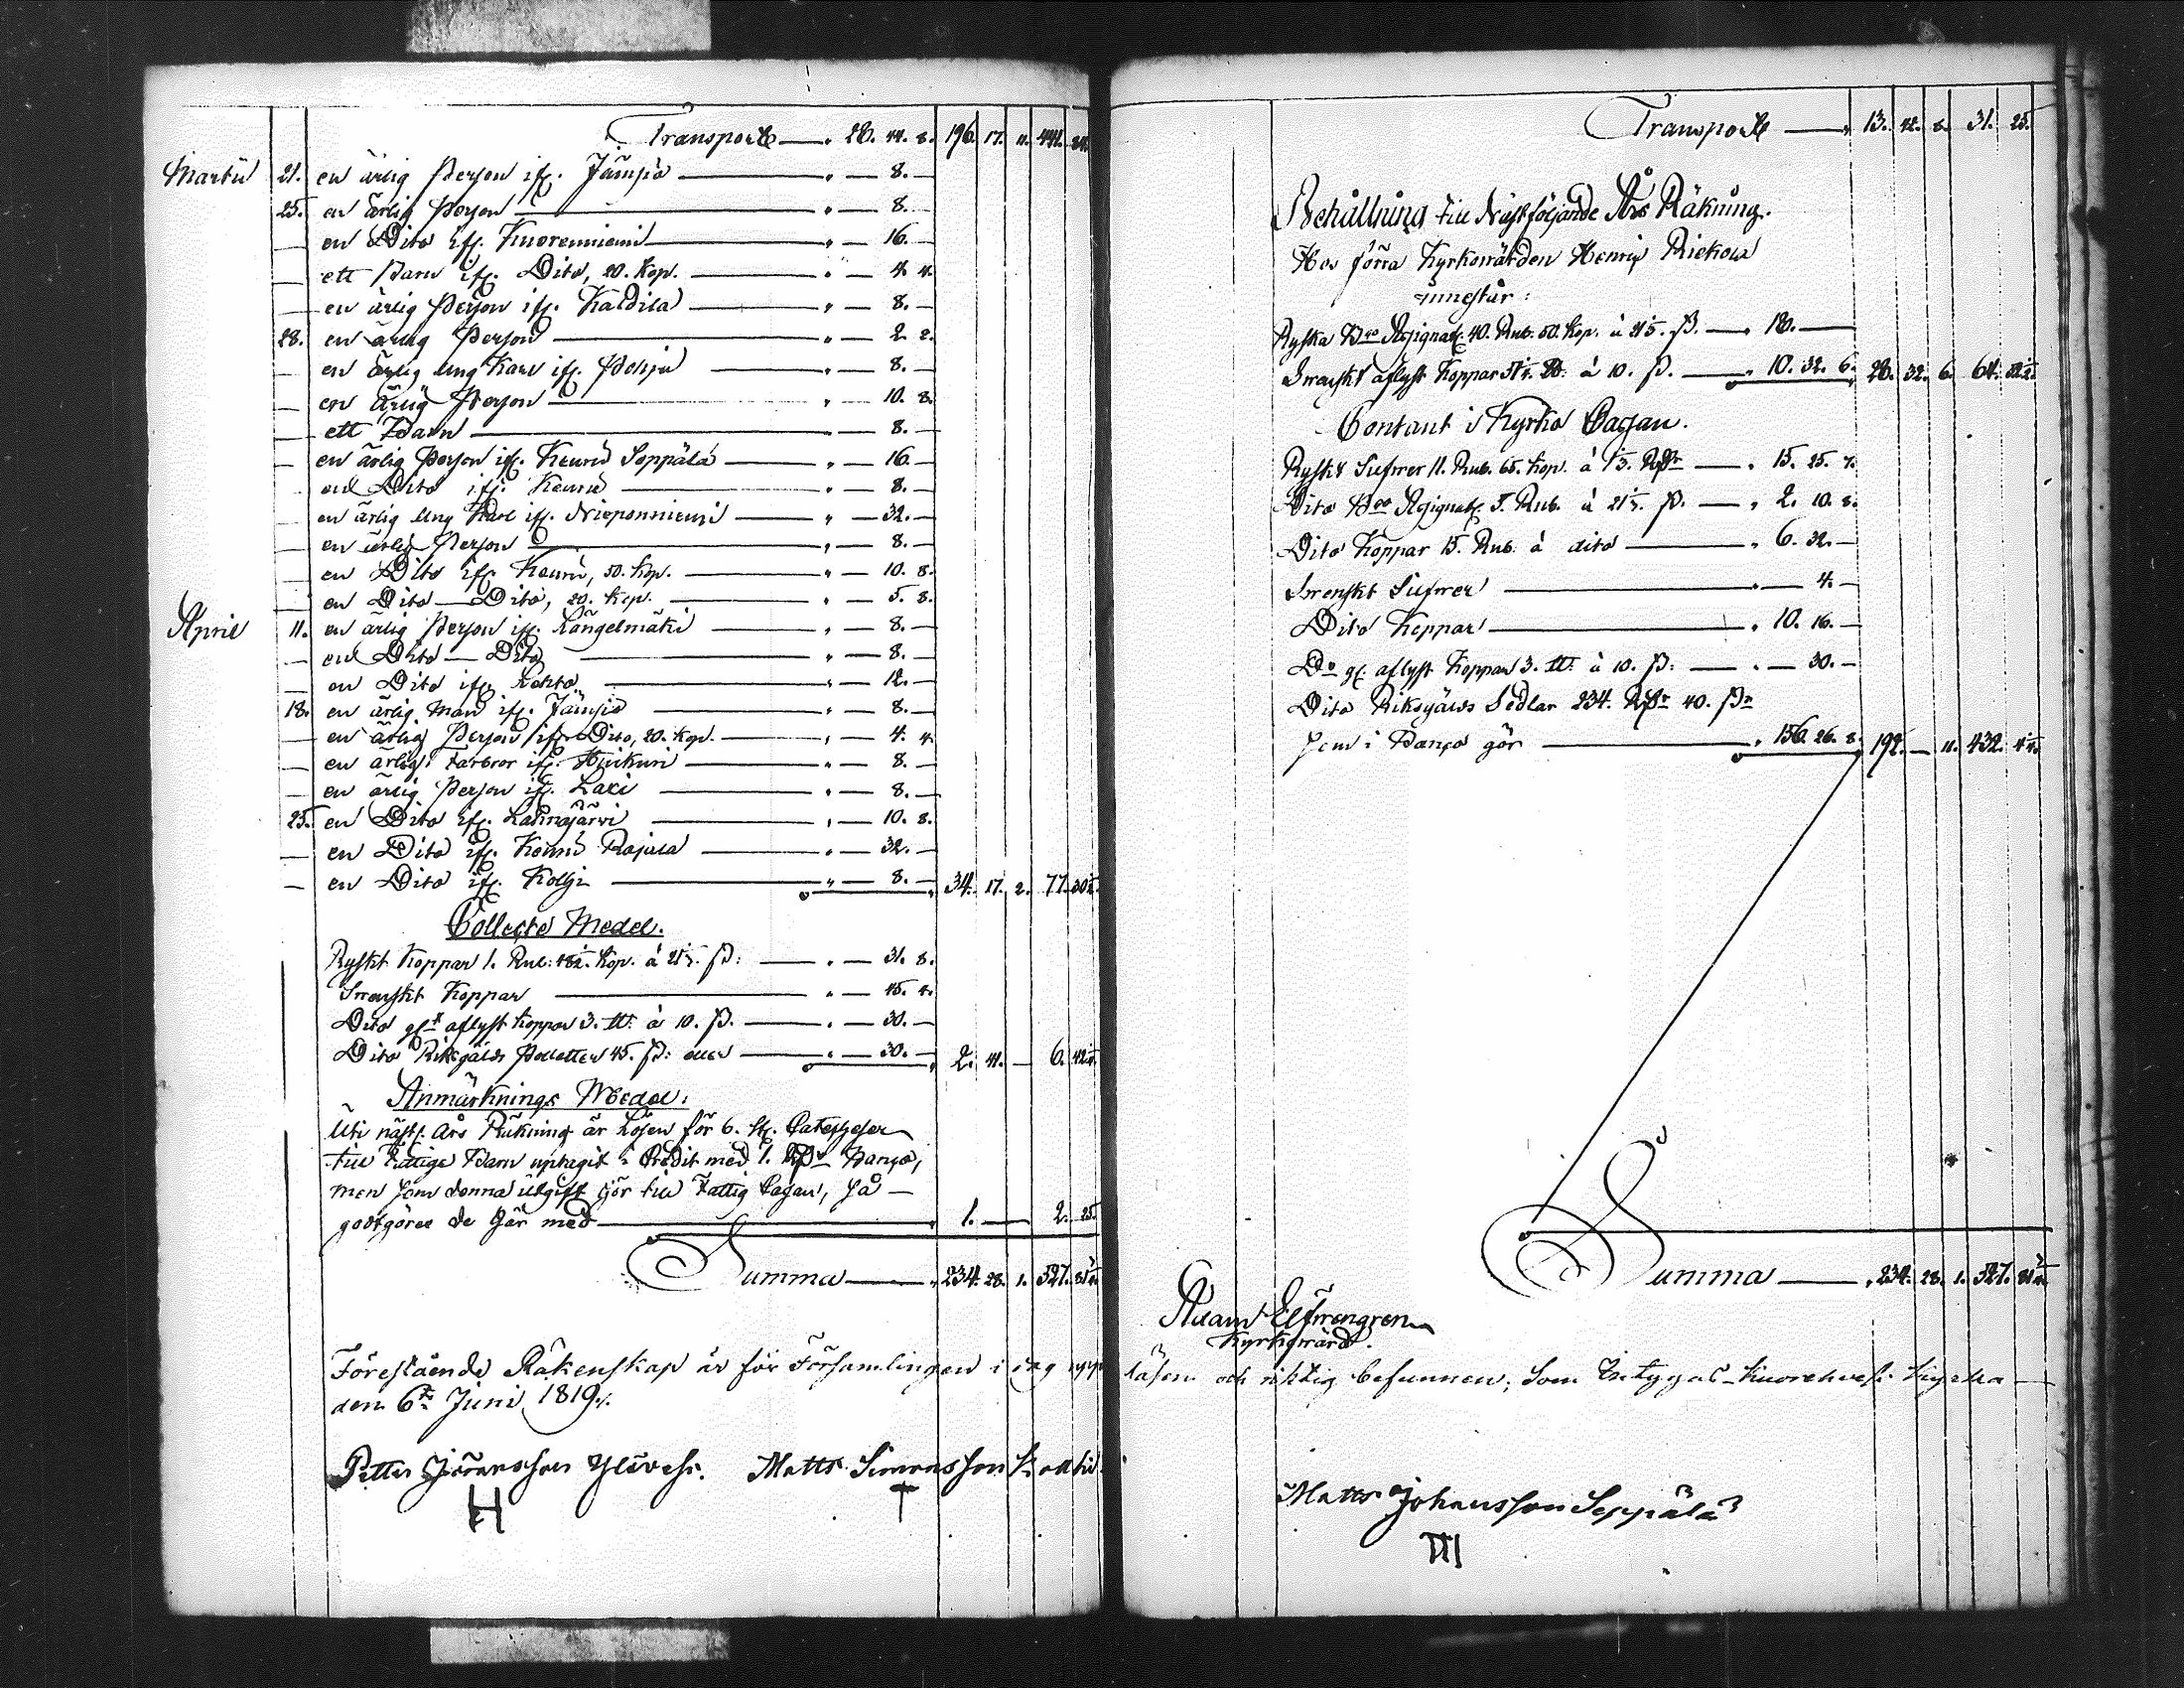 Transport — " 26. 44. 8. 196. 17. 11. 441. 24.
Martii 21. en ärlig Person ifr. Jämsiä — " — 8. —
25. en ärlig Person — " — 8. —
— en Dito ifr. Kuoreniemi — " — 16. —
— ett Barn ifr. Dito, 20. Kop. — " — 4. 4.
— en ärlig Person ifr. Kaldila — " — 8. —
28. en ärlig Person — " — 2. 2.
— en ärlig Ung Karl ifr. Pohja — " — 8. —
— en ärlig Person — " — 10. 8.
— ett Barn — " — 8. —
— en ärlig Person ifr. Keuru Seppälä — " — 16. —
en Dito ifr. Keuru — " — 8. —
— en ärlig Ung Karl ifr. Nieponniemi — " — 32. —
— en ärlig Person — " — 8. —
— en Dito ifr. Keuru, 50. Kop. — " — 10. 8.
— en Dito — Dito, 20. Kop. — " — 5. 8.
April 11. en ärlig Person ifr. Längelmäki — " — 8. —
— en Dito — Dito — " — 8. —
— en Dito ifr. — " — 12. —
18. en ärlig Man ifr. Jämsiä — " — 8. —
— en ärlig Person ifr. Dito, 20. Kop. — " — 4. 4.
— en ärlig Farbror ifr. Huikuri — " — 8. —
— en ärlig Person ifr. Laxi — " — 8. —
25. en Dito ifr. Lahnajärvi — " — 10. 8.
— en Dito ifr. Keuru Rajala — " — 32. —
— en Dito ifr. Kolhi — " — 8. — 34. 17. 2. 77.
Collecte Medel.
Ryskt Koppar 1. Rub: Kop. á 21⅓. ß: — " — 31. 8.
Svenskt Koppar — " — 45. 4.
Dito gt aflyst Koppar 3. ℔: á 10. ß. — " — 30. —
Dito Riksgälds Polletter 45. ß: eller — " — 30. — 2. 41. — 6.
Anmärknings Medel:
Uti näst. Års Räkning är Lösen för 6. st. Catecheser
till Fattige Barn uptagit i Credit med 1. Rdr Banco,
men som denna utgift hör till Fattig Cassan, så —
godtgöres de här med — 1. — 2. 25.
Summa — " 234. 28. 1. 527.
Förestående Räkenskap är för Församlingen i dag upp
den 6te Juni 1819.
Petter Göransson Ylävesi. Matts Simonsson
H T
Transport — " 13. 42. 8. 31. 25.
Behållning till Nästföljande Års Räkning.
Hos förra Kyrkovärden Henric Riekola
innestår:
Ryska Bco Assignat. 40. Rub. 50. Kop. á 21⅓. ß. — " 18. —
Svenskt aflyst Koppar ℔: á 10. ß. — " 10. 32. 6. 28. 32. 6. 64.
Contant i Kyrko Cassan.
Ryskt Silfver 11. Rub. 65. Kop. á 1⅓. Rdr — " 15. 25. 7.
Dito Bco Assignat. 5. Rub. á 21⅓. ß. — " 2. 10. 8.
Dito Koppar 15. Rub: á dito — " 6. 32. —
Svenskt Silfver — " — 4. —
Dito Koppar — " 10. 16. —
Do gt. aflyst Koppar 3. ℔: á 10. ß: — " — 30. —
Dito Riksgälds Sedlar 234. Rdr 40. ß
som i Banco gör — " 156. 26. 8. 192. — 11. 432.
Summa — " 234. 28. 1. 527.
Adam Elfvengren
Kyrkovärd.
läsen och riktig befunnen; Som intygas Kuorehvesi Kyrka —
Matts Johansson Seppälä
III